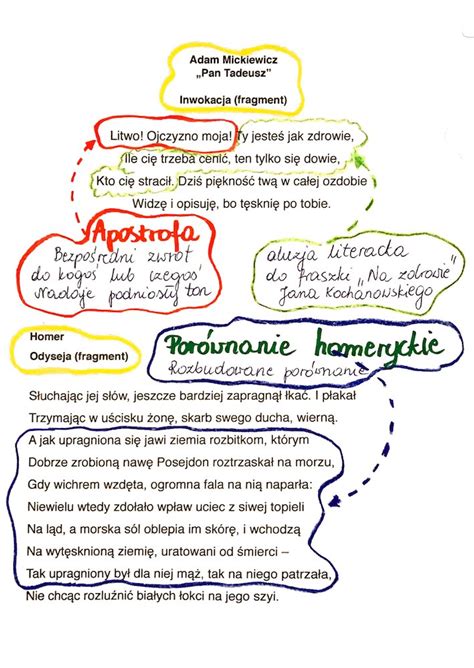 Adam Mickiewicz
„Pan Tadeusz”
Inwokacja (fragment)
Litwo! Ojczyzno moja! Ty jesteś jak zdrowie,
Ile cię trzeba cenić, ten tylko się dowie,
Kto cię stracił. Dziś piękność twą w całej ozdobie
Widzę i opisuję, bo tęsknię po tobie.
Apostrofa
Bezpośredni zwrot
do kogoś lub czegoś
Nadaje podniosły ton
aluzja literacka
do fraszki „Na zdrowie”
Jana Kochanowskiego
Homer
Odyseja (fragment)
Porównanie homeryckie
Rozbudowane porównanie
Słuchając jej słów, jeszcze bardziej zapragnął łkać. I płakał
Trzymając w uścisku żonę, skarb swego ducha, wierną.
A jak upragniona się jawi ziemia rozbitkom, którym
Dobrze zrobioną nawę Posejdon roztrzaskał na morzu,
Gdy wichrem wzdęta, ogromna fala na nią naparła:
Niewielu wtedy zdołało wpław uciec z siwej topieli
Na ląd, a morska sól oblepia im skórę, i wchodzą
Na wytęsknioną ziemię, uratowani od śmierci –
Tak upragniony był dla niej mąż, tak na niego patrzała,
Nie chcąc rozluźnić białych łokci na jego szyi.